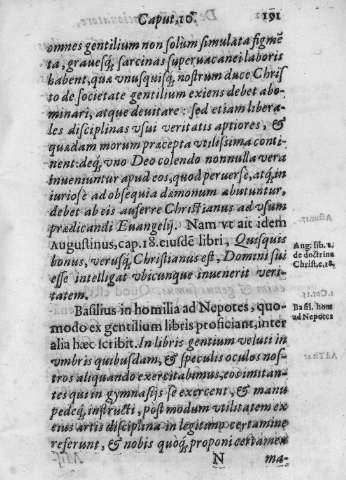 Caput, 10.
191
omnes gentilium non solùm simulata figmẽ
ta, grauesq́, sarcinas superuacanei laboris
habent, quæ vnusquisq́, nostrum duce Chris
to de societate gentilium exiens debet abo-
minari, atque deuitare: sed etiam libera-
les disciplinas vsui veritatis aptiores, &
quædam morum præcepta vtilissima conti-
nent: deq́, vno Deo colendo nonnulla vera
inueniuntur apud eos, quod peruersè, atq́, in
iuriosè ad obsequia dæmonum abutuntur,
debet ab eis auferre Christianus ad vsum
prædicandi Euangelij. Nam vt ait idem
Augustinus, cap. 18. eiusdẽ libri, Quisquis
bonus, verusq́, Christianus est, Domini sui
esse intelligat vbicunque inuenerit veri-
tatem.
Aug. lib. 2.
de doctrina
Christ. c. 18,
Basilius in homilia ad Nepotes, quo-
modo ex gentilium libris proficiant, inter
alia hæc scribit. In libris gentium veluti in
vmbris quibusdam, & speculis oculos nos-
tros aliquando exercitabimus, eos imitan-
tes qui in gymnasijs se exercent, & manu
pedeq́, instructi, post modum vtilitatem ex
eius artis disciplina in legitimo certamine
referunt, & nobis quoq́, proponi certamen
Basil. hom
ad Nepotes
N
ma-